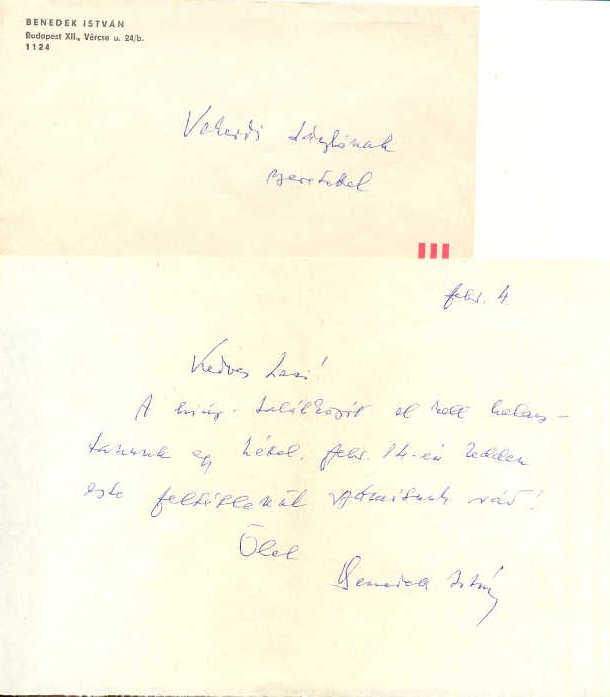 BENEDEK ISTVÁN
Budapest XII., Vércse u. 24/b.
1124
Vekerdi Lászlónak
szeretettel
febr. 4.
Kedves Laci!
A találkozót el kell halasz-
tanunk egy héttel. febr. 14-én kedden
este feltétlenül számítunk rád!
Ölel
Benedek István